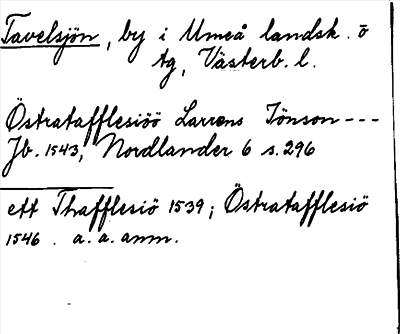 Tavelsjön, by i Umeå landsk. o
tg, Västerb. l.
Östratafflesiöö Larrens Jönson ---
Jb. 1543, Nordlander 6 s. 296
ett Thafflesiö 1539; Östratafflesiö
1546. a. a. anm.